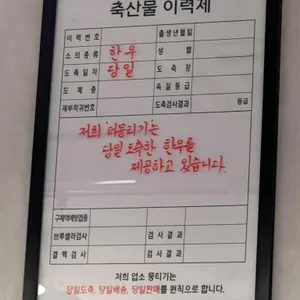 축산물 이력제
이 력 번 호 출생년월일
소의 종류 한우 성 별
도 축 일 자 당일 도 축 장
도 체 중 육 질 등 급
제부착귀번호 도축검사결과 등급
저희 더뭉티기는
당일 도축한 한우를
제공하고 있습니다.
구제역예방접종
브루셀라검사 검 사 결 과
결 핵 검 사 검 사 결 과
저희 업소 뭉티기는
당일도축, 당일배송, 당일판매를 원칙으로 합니다.